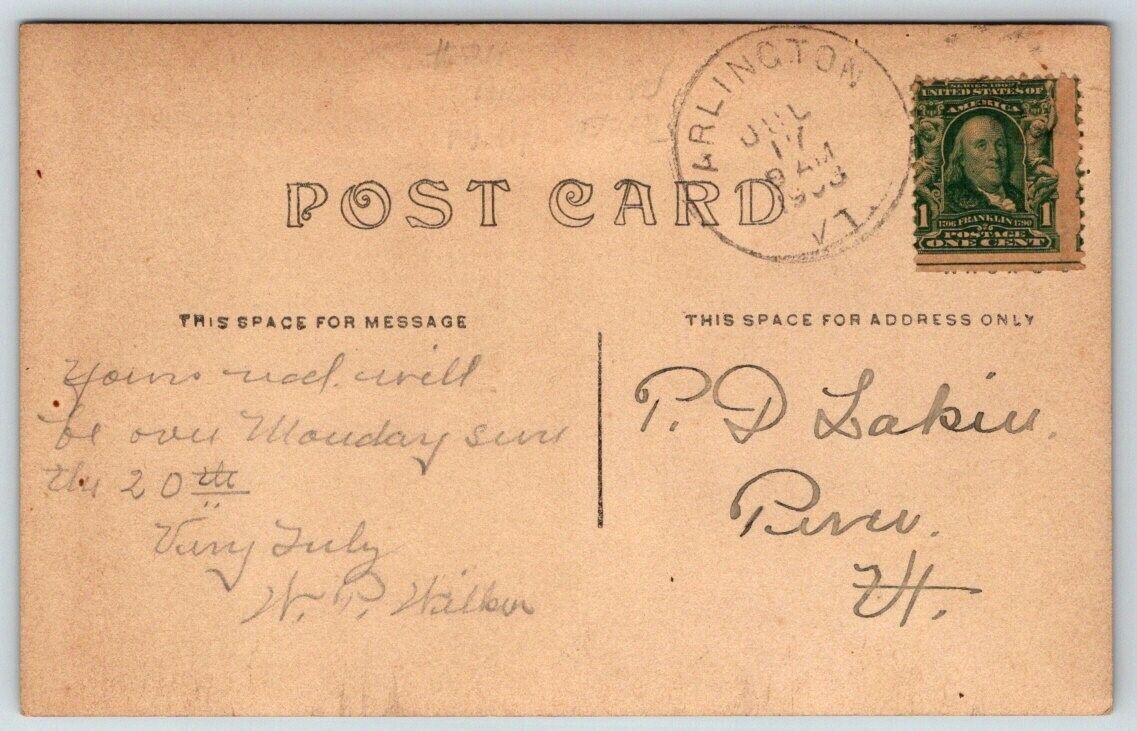 ARLINGTON
JUL
17
9 AM
1908
VT.
SERIES 1902
UNITED STATES OF
AMERICA
1 1706 FRANKLIN 1790 1
POSTAGE
ONE CENT
POST CARD
THIS SPACE FOR MESSAGE
Yours recd. will
be over Monday sure
the 20th
Very Truly
W. P. Wilber
THIS SPACE FOR ADDRESS ONLY
P. D Lakin.
Peru.
Vt.